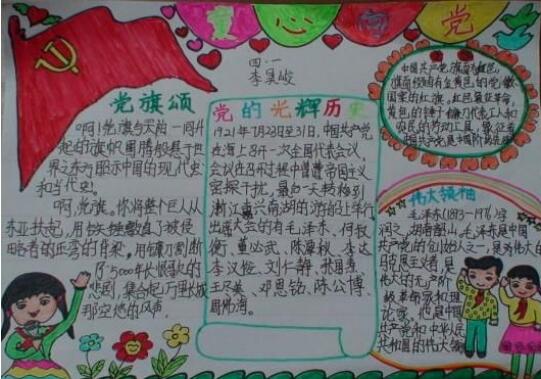 童心向党
四·一
李昊峻
党旗颂
啊！党旗与天地一同升
起的旗帜。圈腾般悬于世
界之东方昭示中国的现代史
和当代史。
啊，党旗。你将整个巨人从
东亚扶起，用铁锤
略者的正弯的脊梁。用镰刀割断
了5000年长恨歌的
悲剧，集合起万里长城
那空绝的风声
党的光辉历史
1921年7月23日至31日，中国共产党
在海上召开一次全国代表会议，
会议在召开过程中曾遭帝国主义
密探干扰，最后一天转移到
浙江嘉兴南湖的游船上举行，
出席大会的有毛泽东、何叔
衡、董必武、陈潭秋、李达
李汉俊、刘仁静、张国焘、
王尽美、邓恩铭、陈公博、
周佛海。
中国共产党旗
旗面
国家的红旗，红色象征革命，
黄色的锤子镰刀代表工人和
农民的劳动工具，象征着
中国共产党是中国工人阶级先锋队
伟大领袖
毛泽东(1893-1976)字
润之，湖南韶山，毛泽东是中国
共产党的创始人之一，是为伟大的
马克思主义者，是
伟大的无产阶
级革命家和理
论家，也是中国
共产党和中华人民
共和国的伟大领